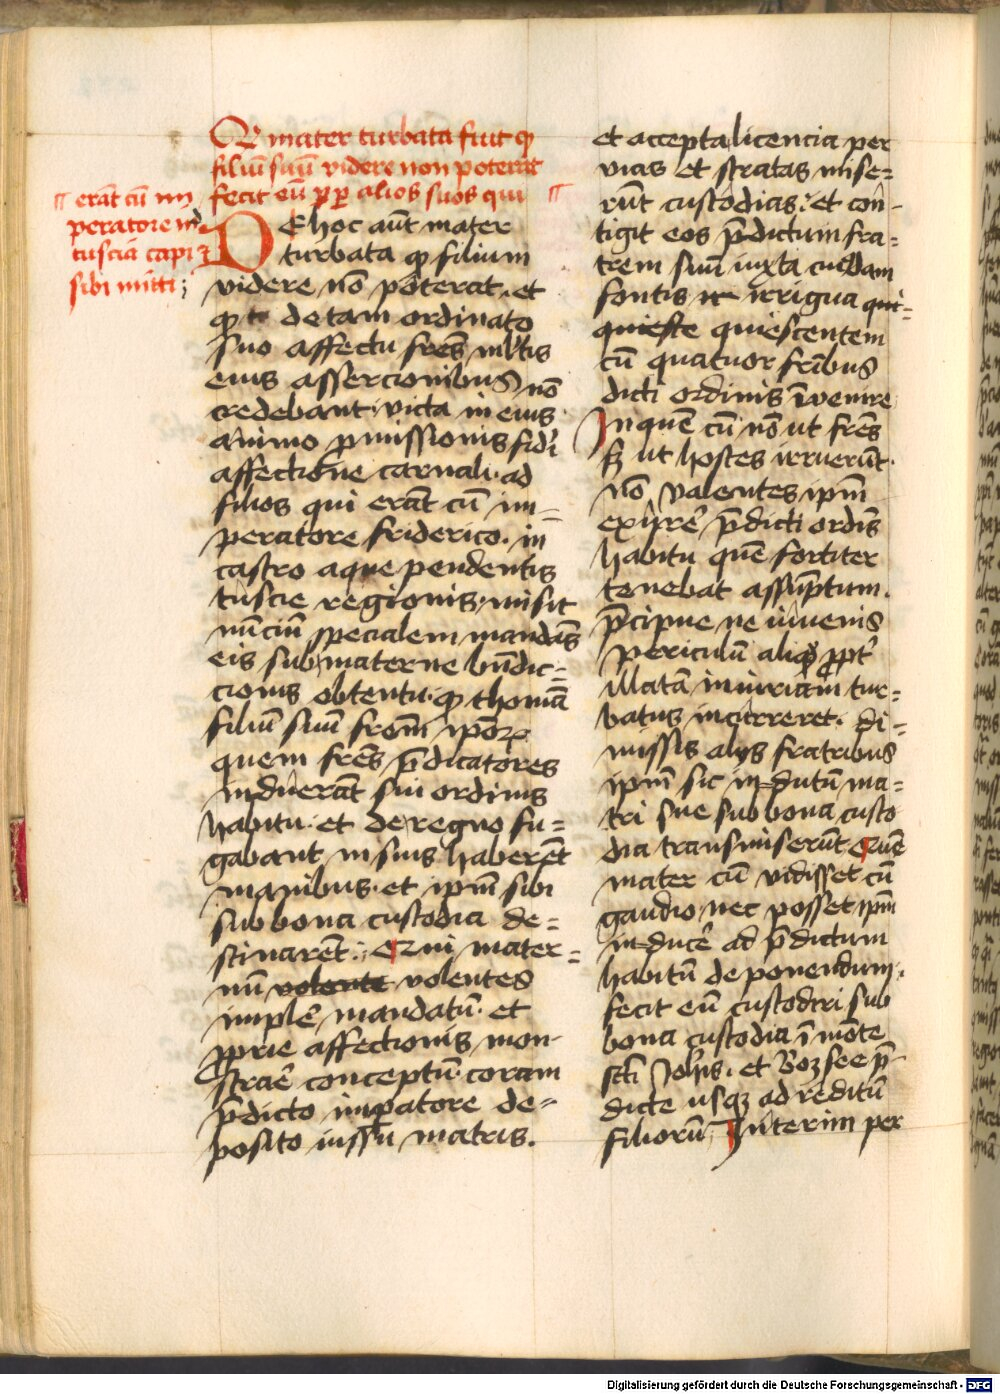 Qr mater turbata fuit qꝫ
filiū suū videre non poterat
fecit eū ꝓpꝛ alios suos qui
erāt cū im
peratore in
tuscia capi ⁊
sibi mitti;
De hoc aūt mater
turbata qꝫ filium
videre nō poterat. et
qꝫ de tam ordinato
suo affectu fres̄ mltis
eius assercionibus nō
credebant. victa in eius
animo ꝑmissionis fidi
affectione carnali. ad
filios qui erāt cū im=
peratore friderico. in
castro aque pendentis
tuscie regionis. misit
nūciū specialem mandās
eis sub materne bn̄dic=
cionis obtentu. qꝫ thomā
filiū suū frem̄ ipoꝝ
quem fres̄ p̄dicatores
induerāt sui ordinis
habitu. et de regno fu=
gabant in suis haberēt
manibus. et ipm̄ sibi
sub bona custodia de=
stinarēt. Qui mater=
nū volente volentes
implē mandatū. et
ꝓprie affectionis mon-
straē conceptū. coram
p̄dicto impatore de=
posito iussu matris.
et accepta licencia per
vias et stratas mise=
rūt custodias. et con-
tigit eos p̄dictum fra=
trem suū iuxta cuiusdam
fontis irrigua qui=
quieste quiescentem
cū quatuor fribus
dicti ordinis īvenire
In quē cū nō ut fres̄
sꝫ ut hostes irruerūt.
nō valentes ipm̄
exuere p̄dicti ordīs
habitu quē fortiter
tenebat assūptum.
p̄cipue ne iuvenis
periculū aliqꝫ ꝓpt
illatā iniuriam tur=
batus incurreret. di=
missis alijs fratribus
ipm̄ sic indutū ma=
tri sue sub bona custo
dia transmiserūt. Quē
mater cū vidisset cū
gaudio, nec posset ipm̄
inducē ad p̄dictum
habitū deponendum.
fecit eū custodiri sub
bona custodia ī mōte
scti Joh̄is. et Roꝫsee p̄-
dicte usqꝫ ad reditū
filiorū. Interim per
Digitalisierung gefördert durch die Deutsche Forschungsgemeinschaft - DFG